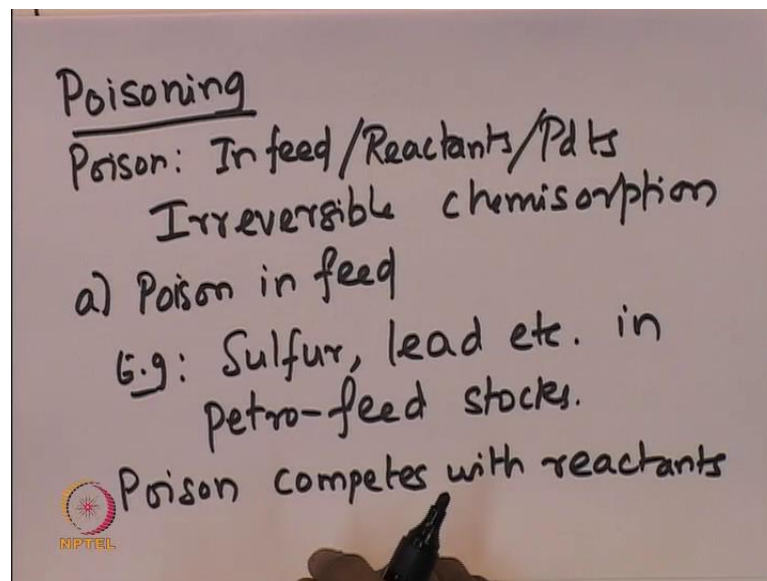 Poisoning
Poison: In feed/Reactants/Pdts
Irreversible chemisorption
a) Poison in feed
E.g: Sulfur, lead etc. in
petro-feed stocks.
Poison competes with reactants
NPTEL